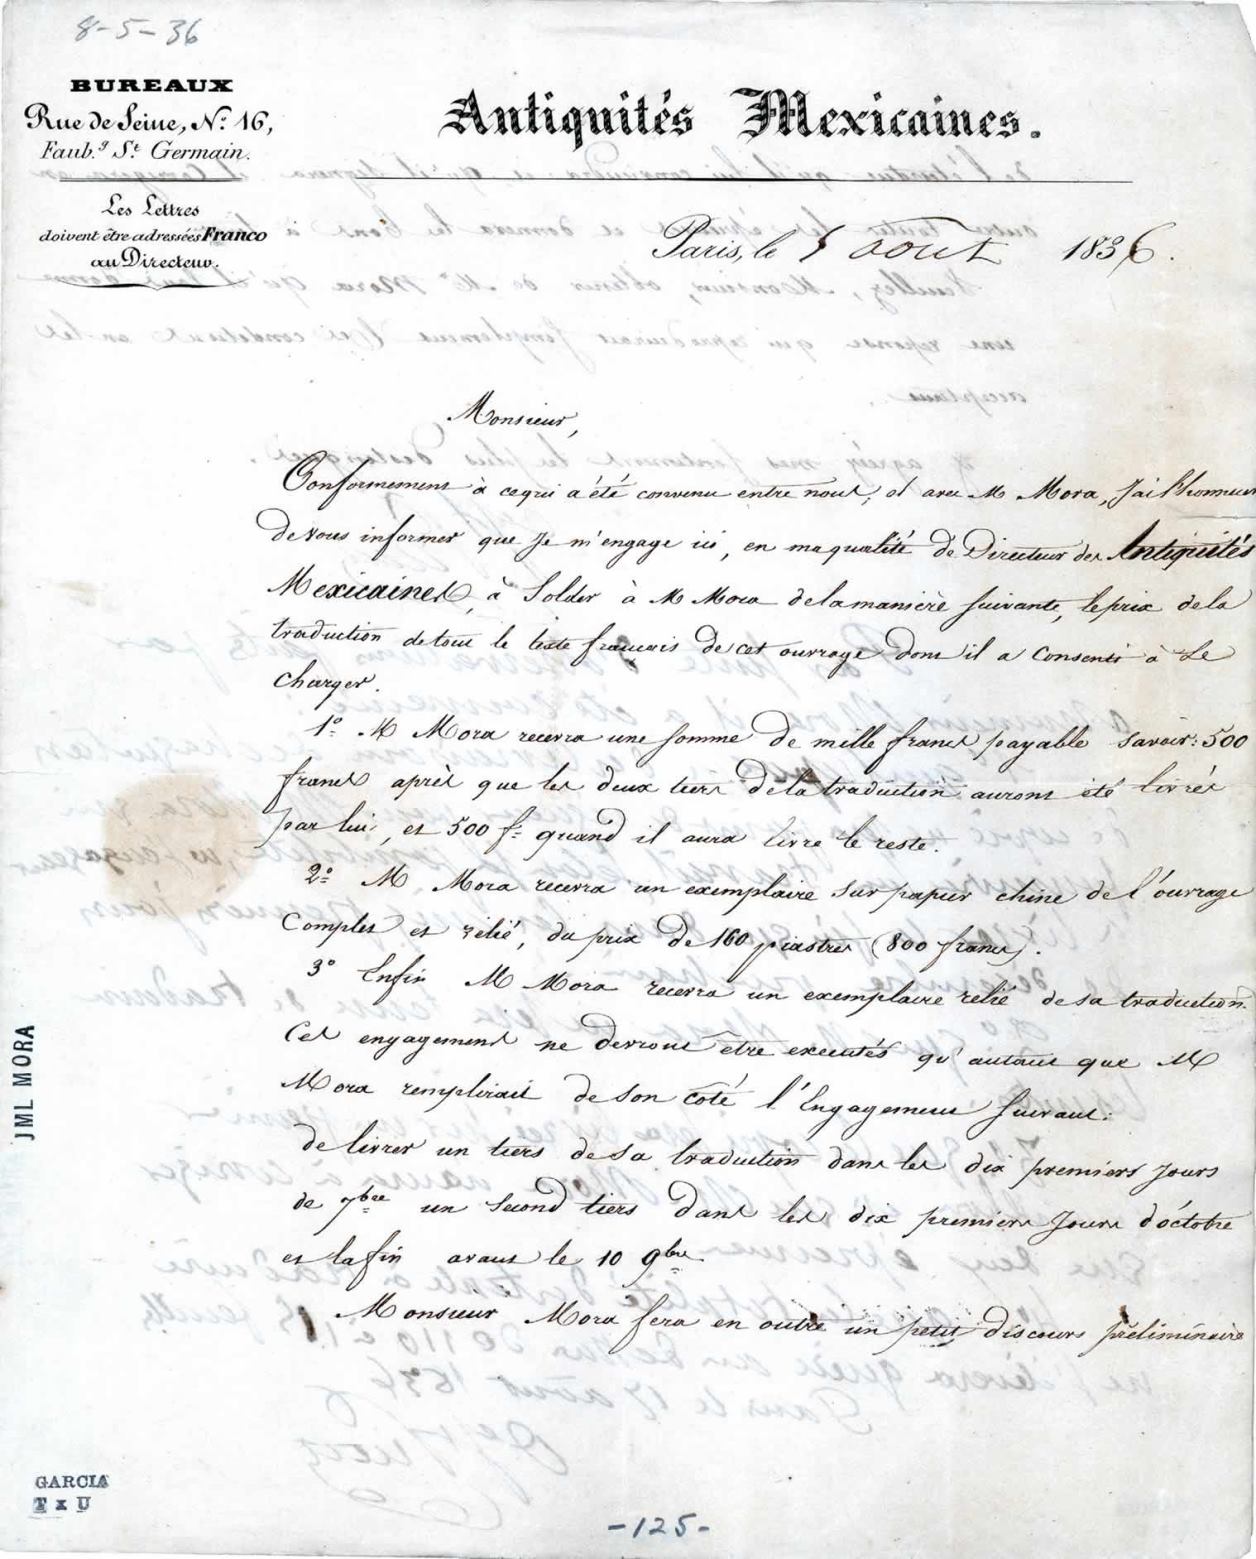 8-5-36
BUREAUX
Rue de Seine, N.º 16,
Faub.g S.t Germain.
Les Lettres
doivent être adressées Franco
au Directeur.
Antiquités Mexicaines.
Paris, le 5 aout 1836.
Monsieur,
Conformement à ce qui a été convenu entre nous, et avec M Mora, J'ai l'honneur
de vous informer que Je m'engage ici, en ma qualité de Directeur des Antiquités
Mexicaines, à Solder à M Mora de la manière suivante, le prix de la
traduction de tout le texte français de cet ouvrage dont il a Consenti à Se
Charger.
1º M Mora recevra une somme de mille francs payable savoir: 500
francs après que les deux tiers de la traduction auront été livrés
par lui, et 500 f.s quand il aura livre le reste.
2º M Mora recevra un exemplaire sur papier chine de l'ouvrage
Complet et rélié, du prix de 160 piastres (800 francs).
3º Enfin M Mora recevra un exemplaire relié de sa traduction.
Ces engagements ne devront être executés qu'autant que M
Mora remplirait de Son coté l'Engagement Suivant:
de livrer un tiers de sa traduction dans les dix premiers Jours
de 7bre un Second tiers dans les dix premiers Jours d'octobre
et la fin avant le 10 9bre
Monsieur Mora fera en outre un petit discours préliminaire
JML MORA
GARCIA
T x U
-125-